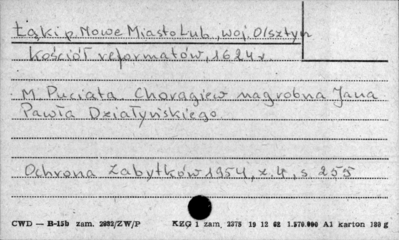 Łąki p. Nowe Miasto Lub., woj. Olsztyn
Kościół reformatów, 1624 r.
M. Puciata Chorągiew nagrobna Jana
Pawła Działyńskiego
Ochrona Zabytków 1954, z. 4, s. 255
CWD — B-15b zam. 2932/ZW/P KZG 1 zam. 2375 19 12 02 1.570.000 A1 karton 180 g